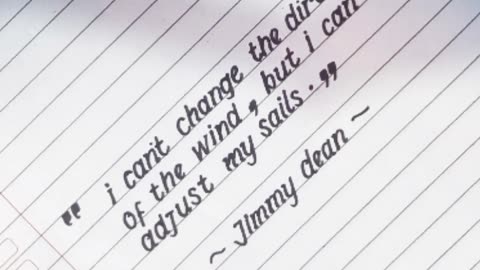 " i can't change the dire
of the wind, but i can
adjust my sails."
~ Jimmy dean ~